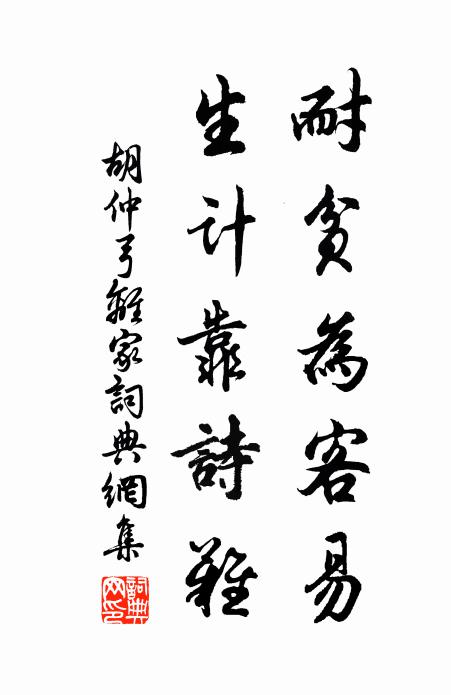 耐貧為客易
生計靠詩難
胡仲弓離家詞典網集
詞典網印